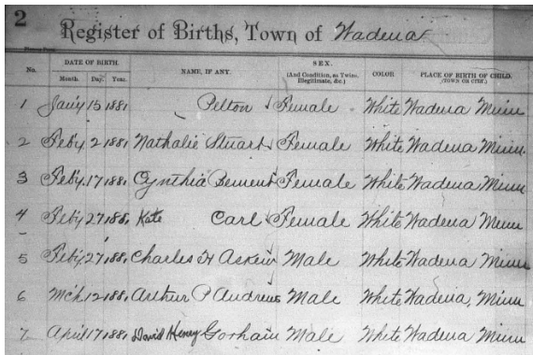 2
Register of Births, Town of Wadena
No.
DATE OF BIRTH.
Month. Day. Year.
NAME, IF ANY.
SEX.
(And Condition, as Twins, Illegitimate, &c.)
COLOR
PLACE OF BIRTH OF CHILD.
(TOWN OR CITY.)
1 Jan'y 15 1881 Pelton Female White Wadena Minn
2 Feb'y 2 1881 Nathalie Stuart Female White Wadena Minn.
3 Feb'y 17 1881 Cynthia Dement Female White Wadena Minn
4 Feb'y 27 188 Kate Carl Female White Wadena Minn
5 Feb'y 27 188 Charles H Askew Male White Wadena Minn
6 Mch 12 188 Arthur P Andrews Male White Wadena, Minn
7 April 17 1881 David Henry Gorham Male White Wadena Minn